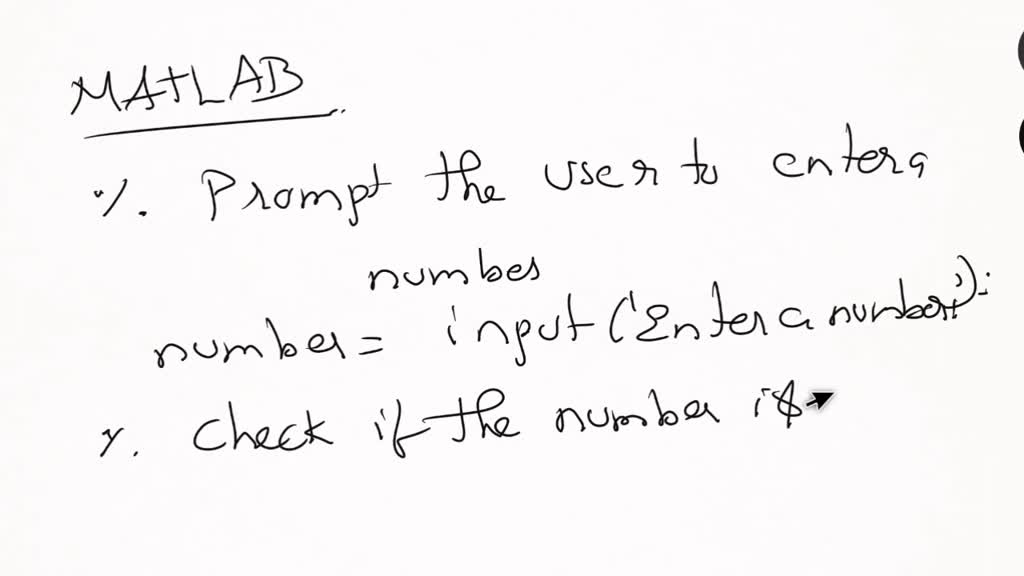 MATLAB
%. Prompt the user to enter a
number
number = input('Enter a number:');
%. check if the number is